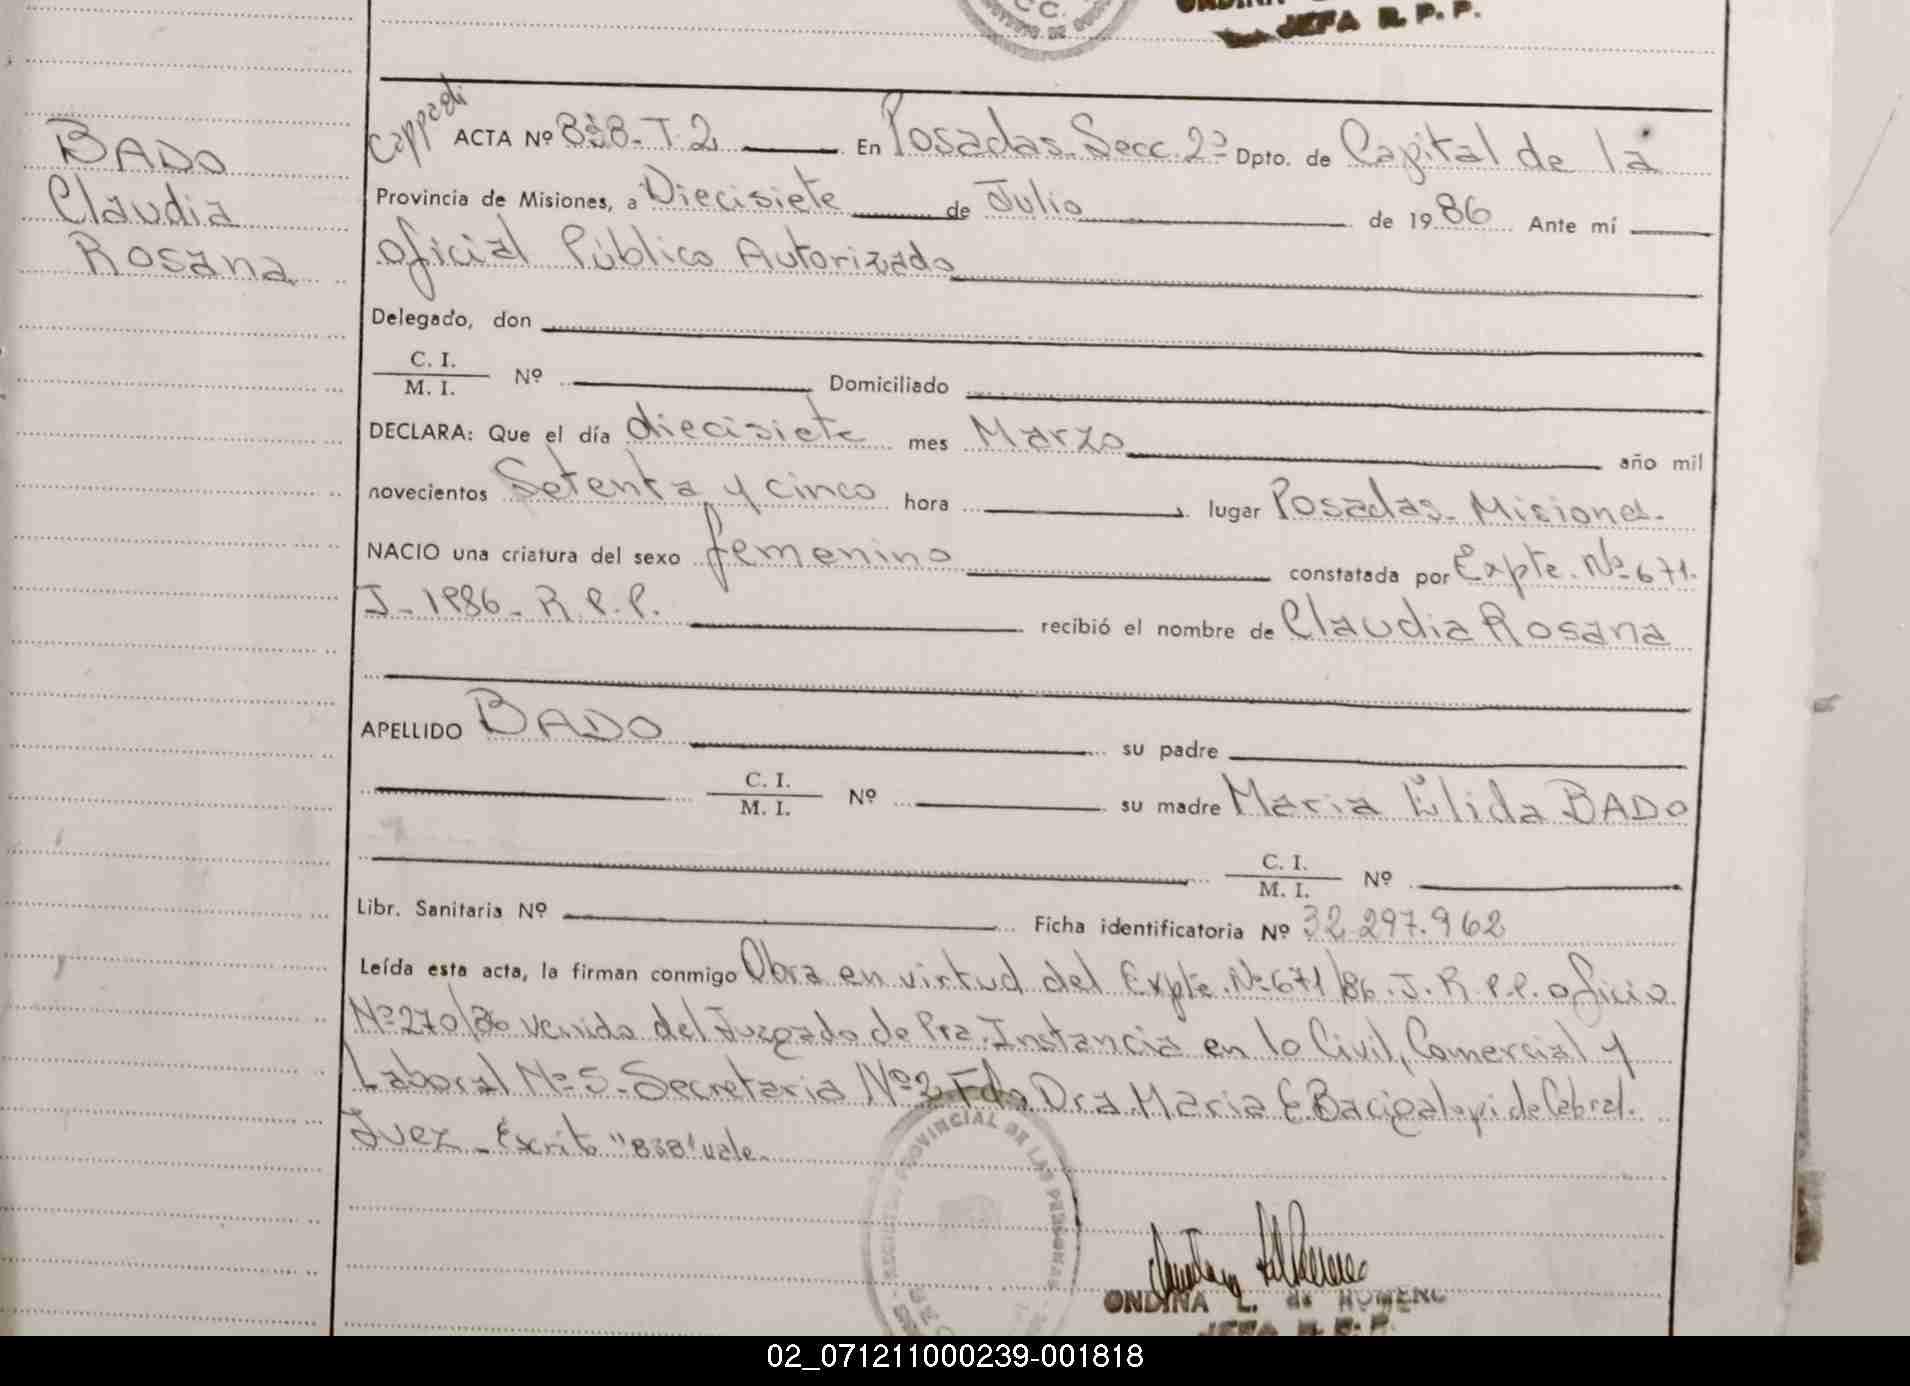 ONDINA
JEFA R. P. P.
BADO
Claudia
Rosana
ACTA Nº 838-T.2 En Posadas. Secc. 2ª Dpto. de Capital de la
Provincia de Misiones, a Diecisiete de Julio de 1986 Ante mí
oficial Público Autorizado
Delegado, don
C. I.
M. I. Nº Domiciliado
DECLARA: Que el día diecisiete mes Marzo año mil
novecientos Setenta y cinco hora lugar Posadas. Misiones.
NACIO una criatura del sexo femenino constatada por Expte. Nº 671.
J-1986-R.P.P. recibió el nombre de Claudia Rosana
APELLIDO BADO su padre
C. I.
M. I. Nº su madre Maria Elida BADO
C. I.
M. I. Nº
Libr. Sanitaria Nº Ficha identificatoria Nº 32.297.962
Leída esta acta, la firman conmigo Obra en virtud del Expte. Nº 671/86. J. R.P.P. oficio
Nº 270/86 venido del Juzgado de Pra. Instancia en lo Civil, Comercial y
Laboral Nº 5-Secretaria Nº 2 Fdo Dra. Maria E. Bacigalupi de Cabral.
Juez_ Escrito "838" vale.
PROVINCIAL DE LAS PERSONAS
ONDINA L. de ROMERO
JEFA R. P. P.
02_071211000239-001818